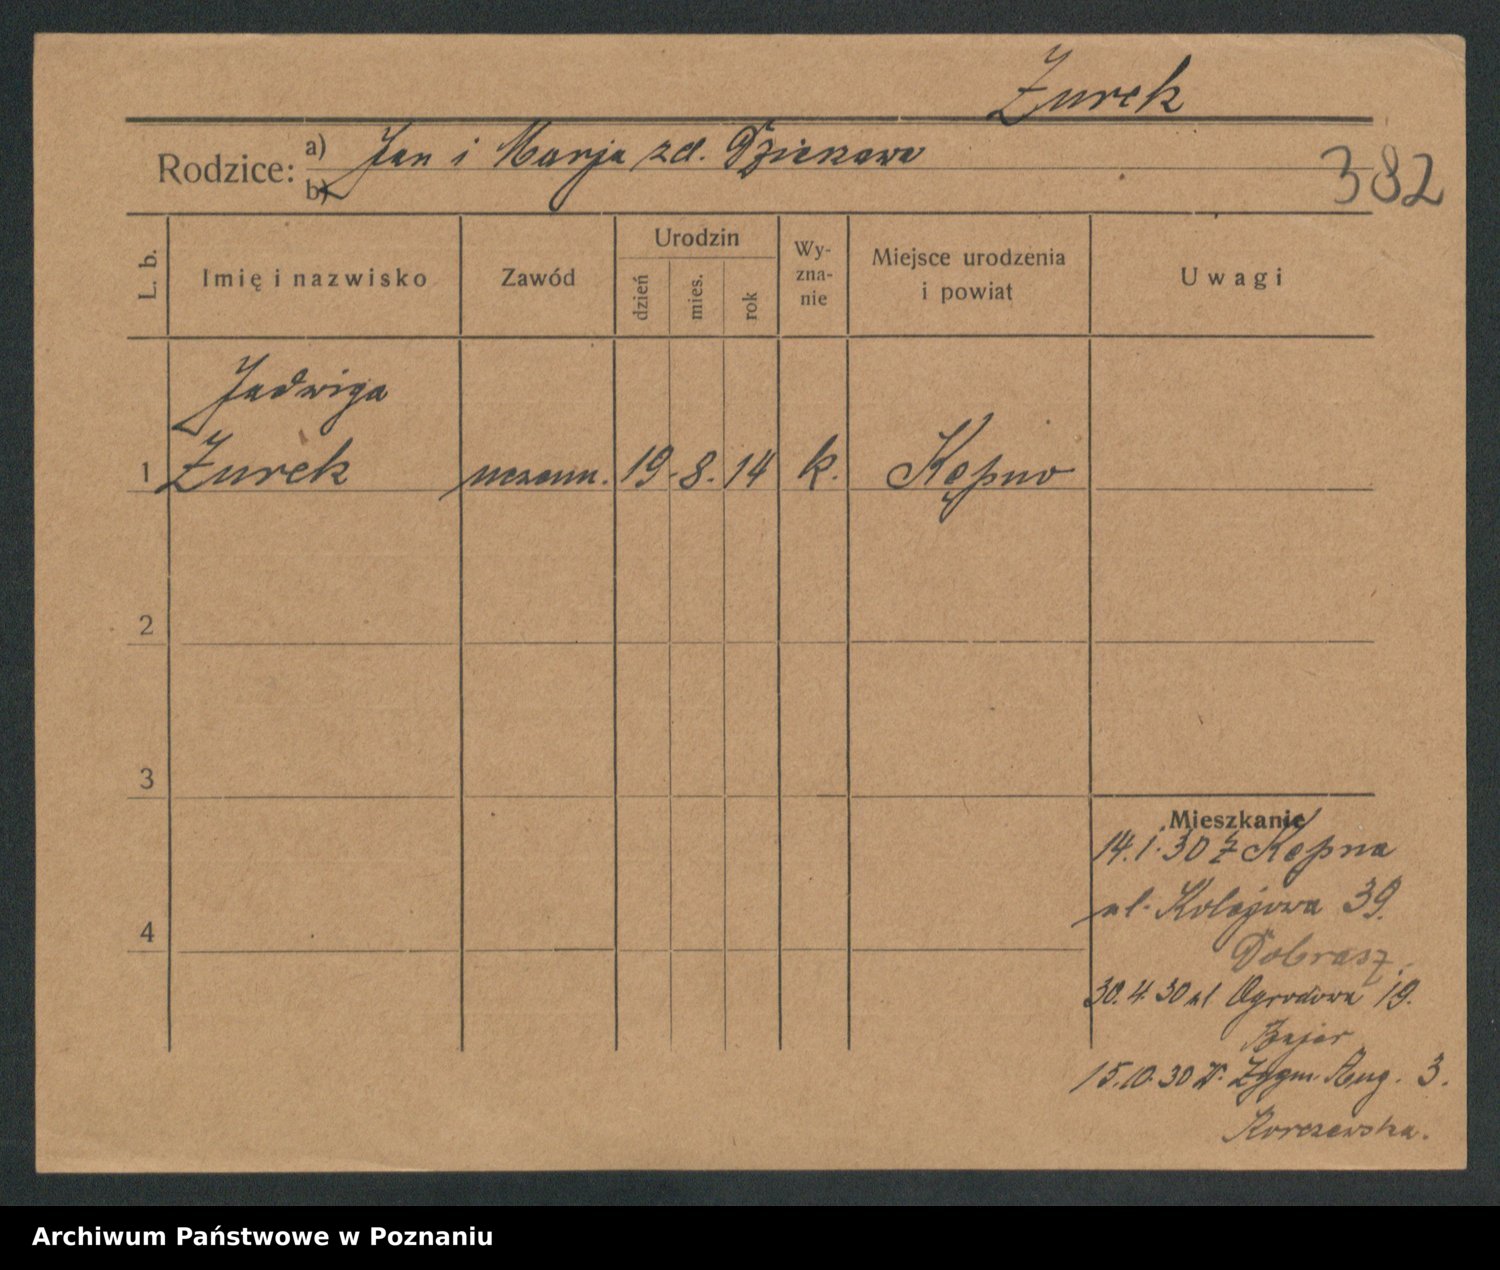 Żurek
Rodzice: a) Jan i Marja zd.
b)
382
L. b.
Imię i nazwisko
Zawód
Urodzin
dzień
mies.
rok
Wy-
zna-
nie
Miejsce urodzenia
i powiat
Uwagi
Jadwiga
1 Żurek uczenn. 19. 8. 14 k. Kępno
2
3
4
Mieszkanie
14.1.30 z Kępna
ul. Kolejowa 39.
30.4.30 ul Ogrodowa 19.
Bajer
15.10.30 Zygm. Aug. 3.
Korczewska.
Archiwum Państwowe w Poznaniu